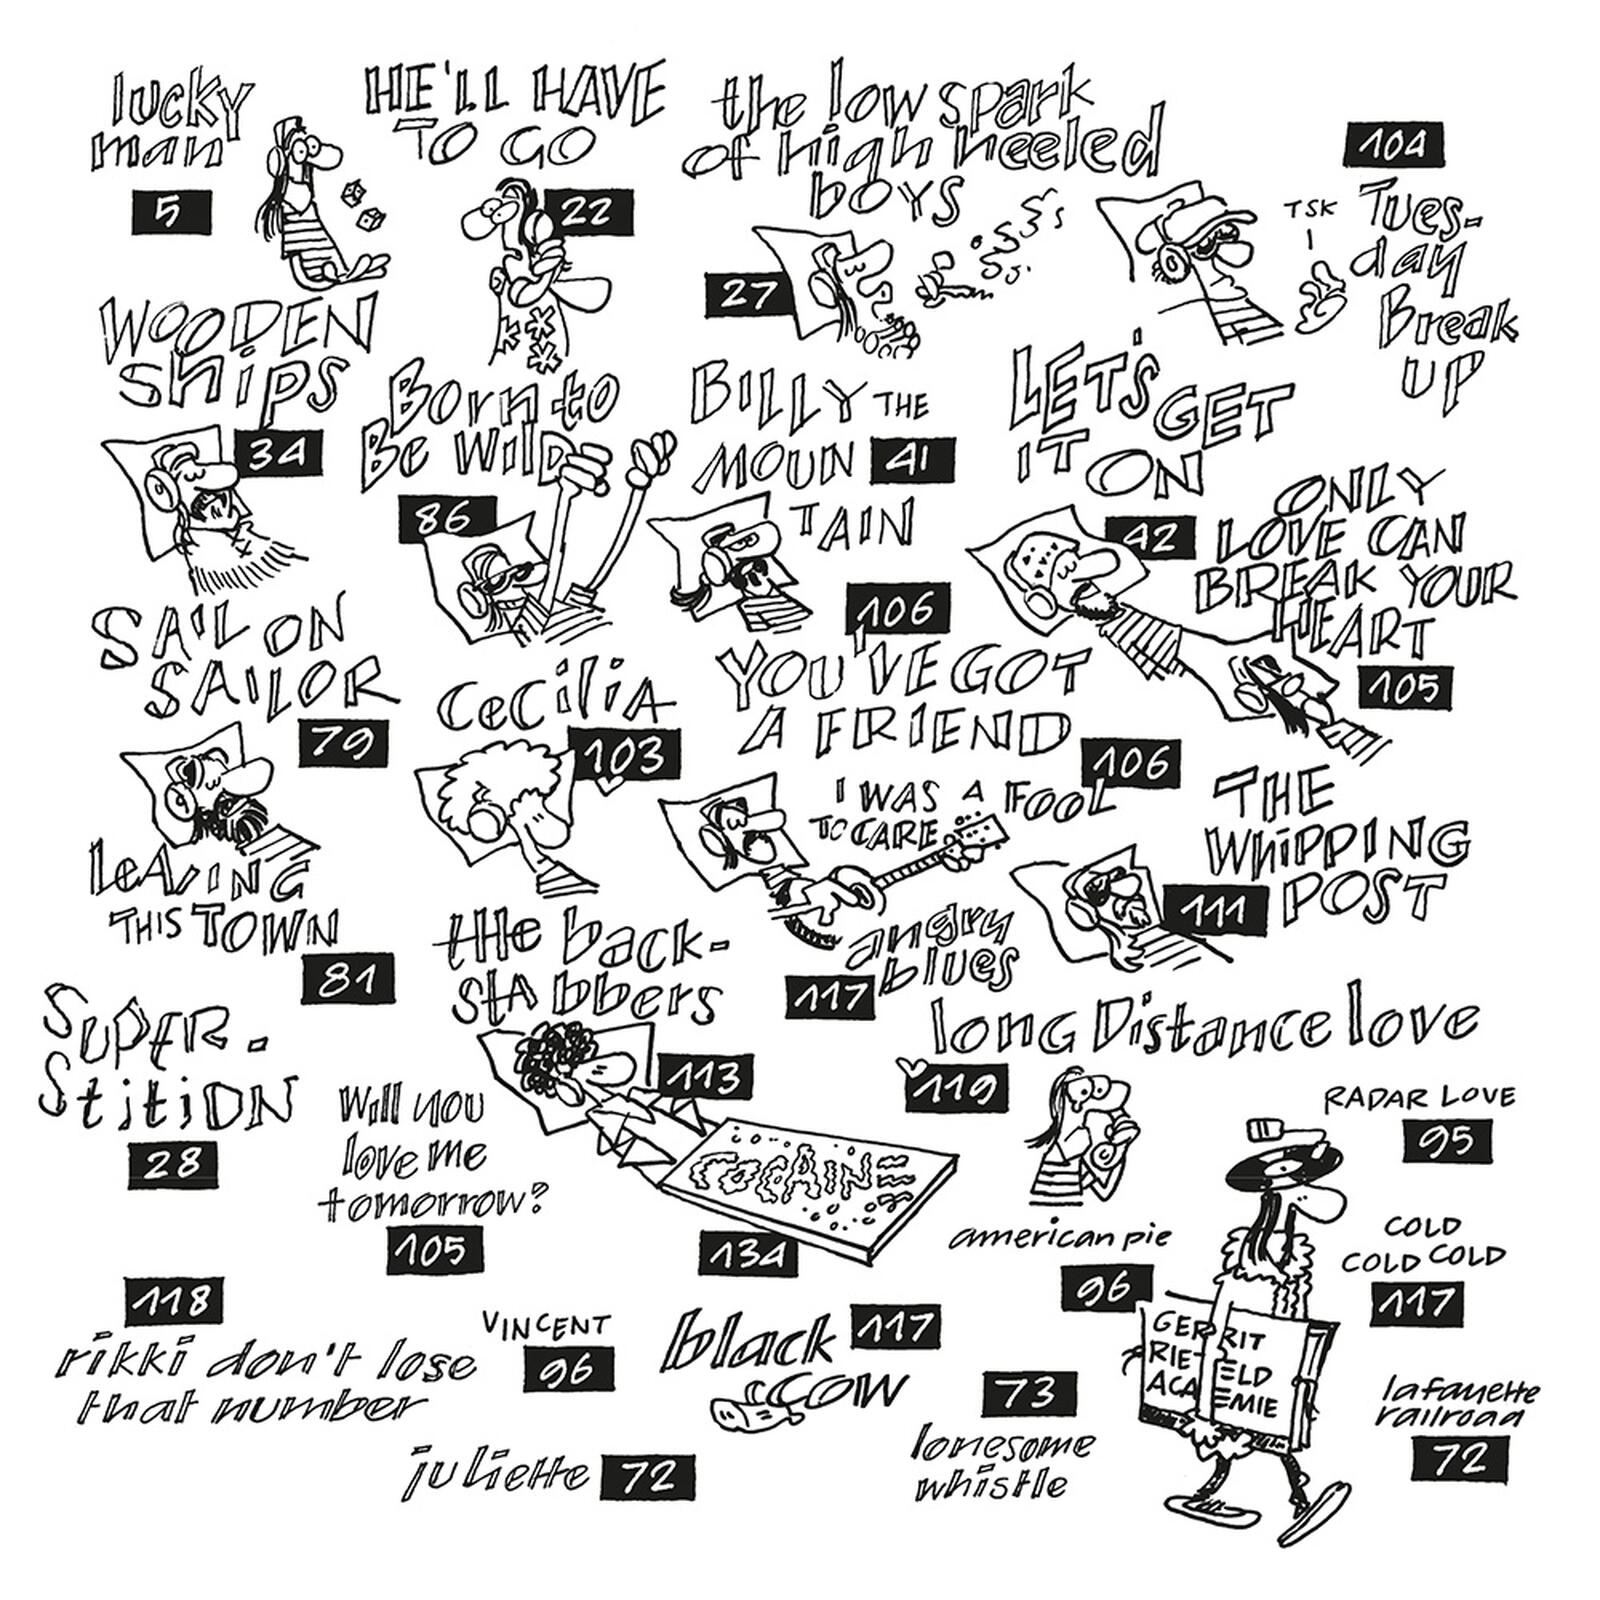 lucky
man
5
HE'LL HAVE
TO GO
22
the low spark
of high heeled
boys
27
104
TSK
Tues-
day
Break
UP
WOODEN
ships
34
Born to
Be Wild
86
BILLY THE
MOUN
41
TAIN
LET'S
GET
IT ON
42
ONLY
LOVE CAN
BREAK YOUR
HEART
105
SAIL ON
SAILOR
79
CeCiliA
103
106
YOU'VE GOT
A FRIEND
106
I WAS A FOOL
TO CARE
THE
WHiPPING
POST
111
LeAVING
THIS TOWN
81
the back-
stabbers
113
angry
blues
117
long Distance love
119
SUPER-
StitiON
28
Will you
love me
tomorrow?
105
COCAINE
134
RADAR LOVE
95
american pie
96
COLD
COLD COLD
117
118
rikki don't lose
that number
VINCENT
96
black
COW
117
GERRIT
RIETELD
ACADEMIE
73
lonesome
whistle
lafayette
railroad
72
juliette
72